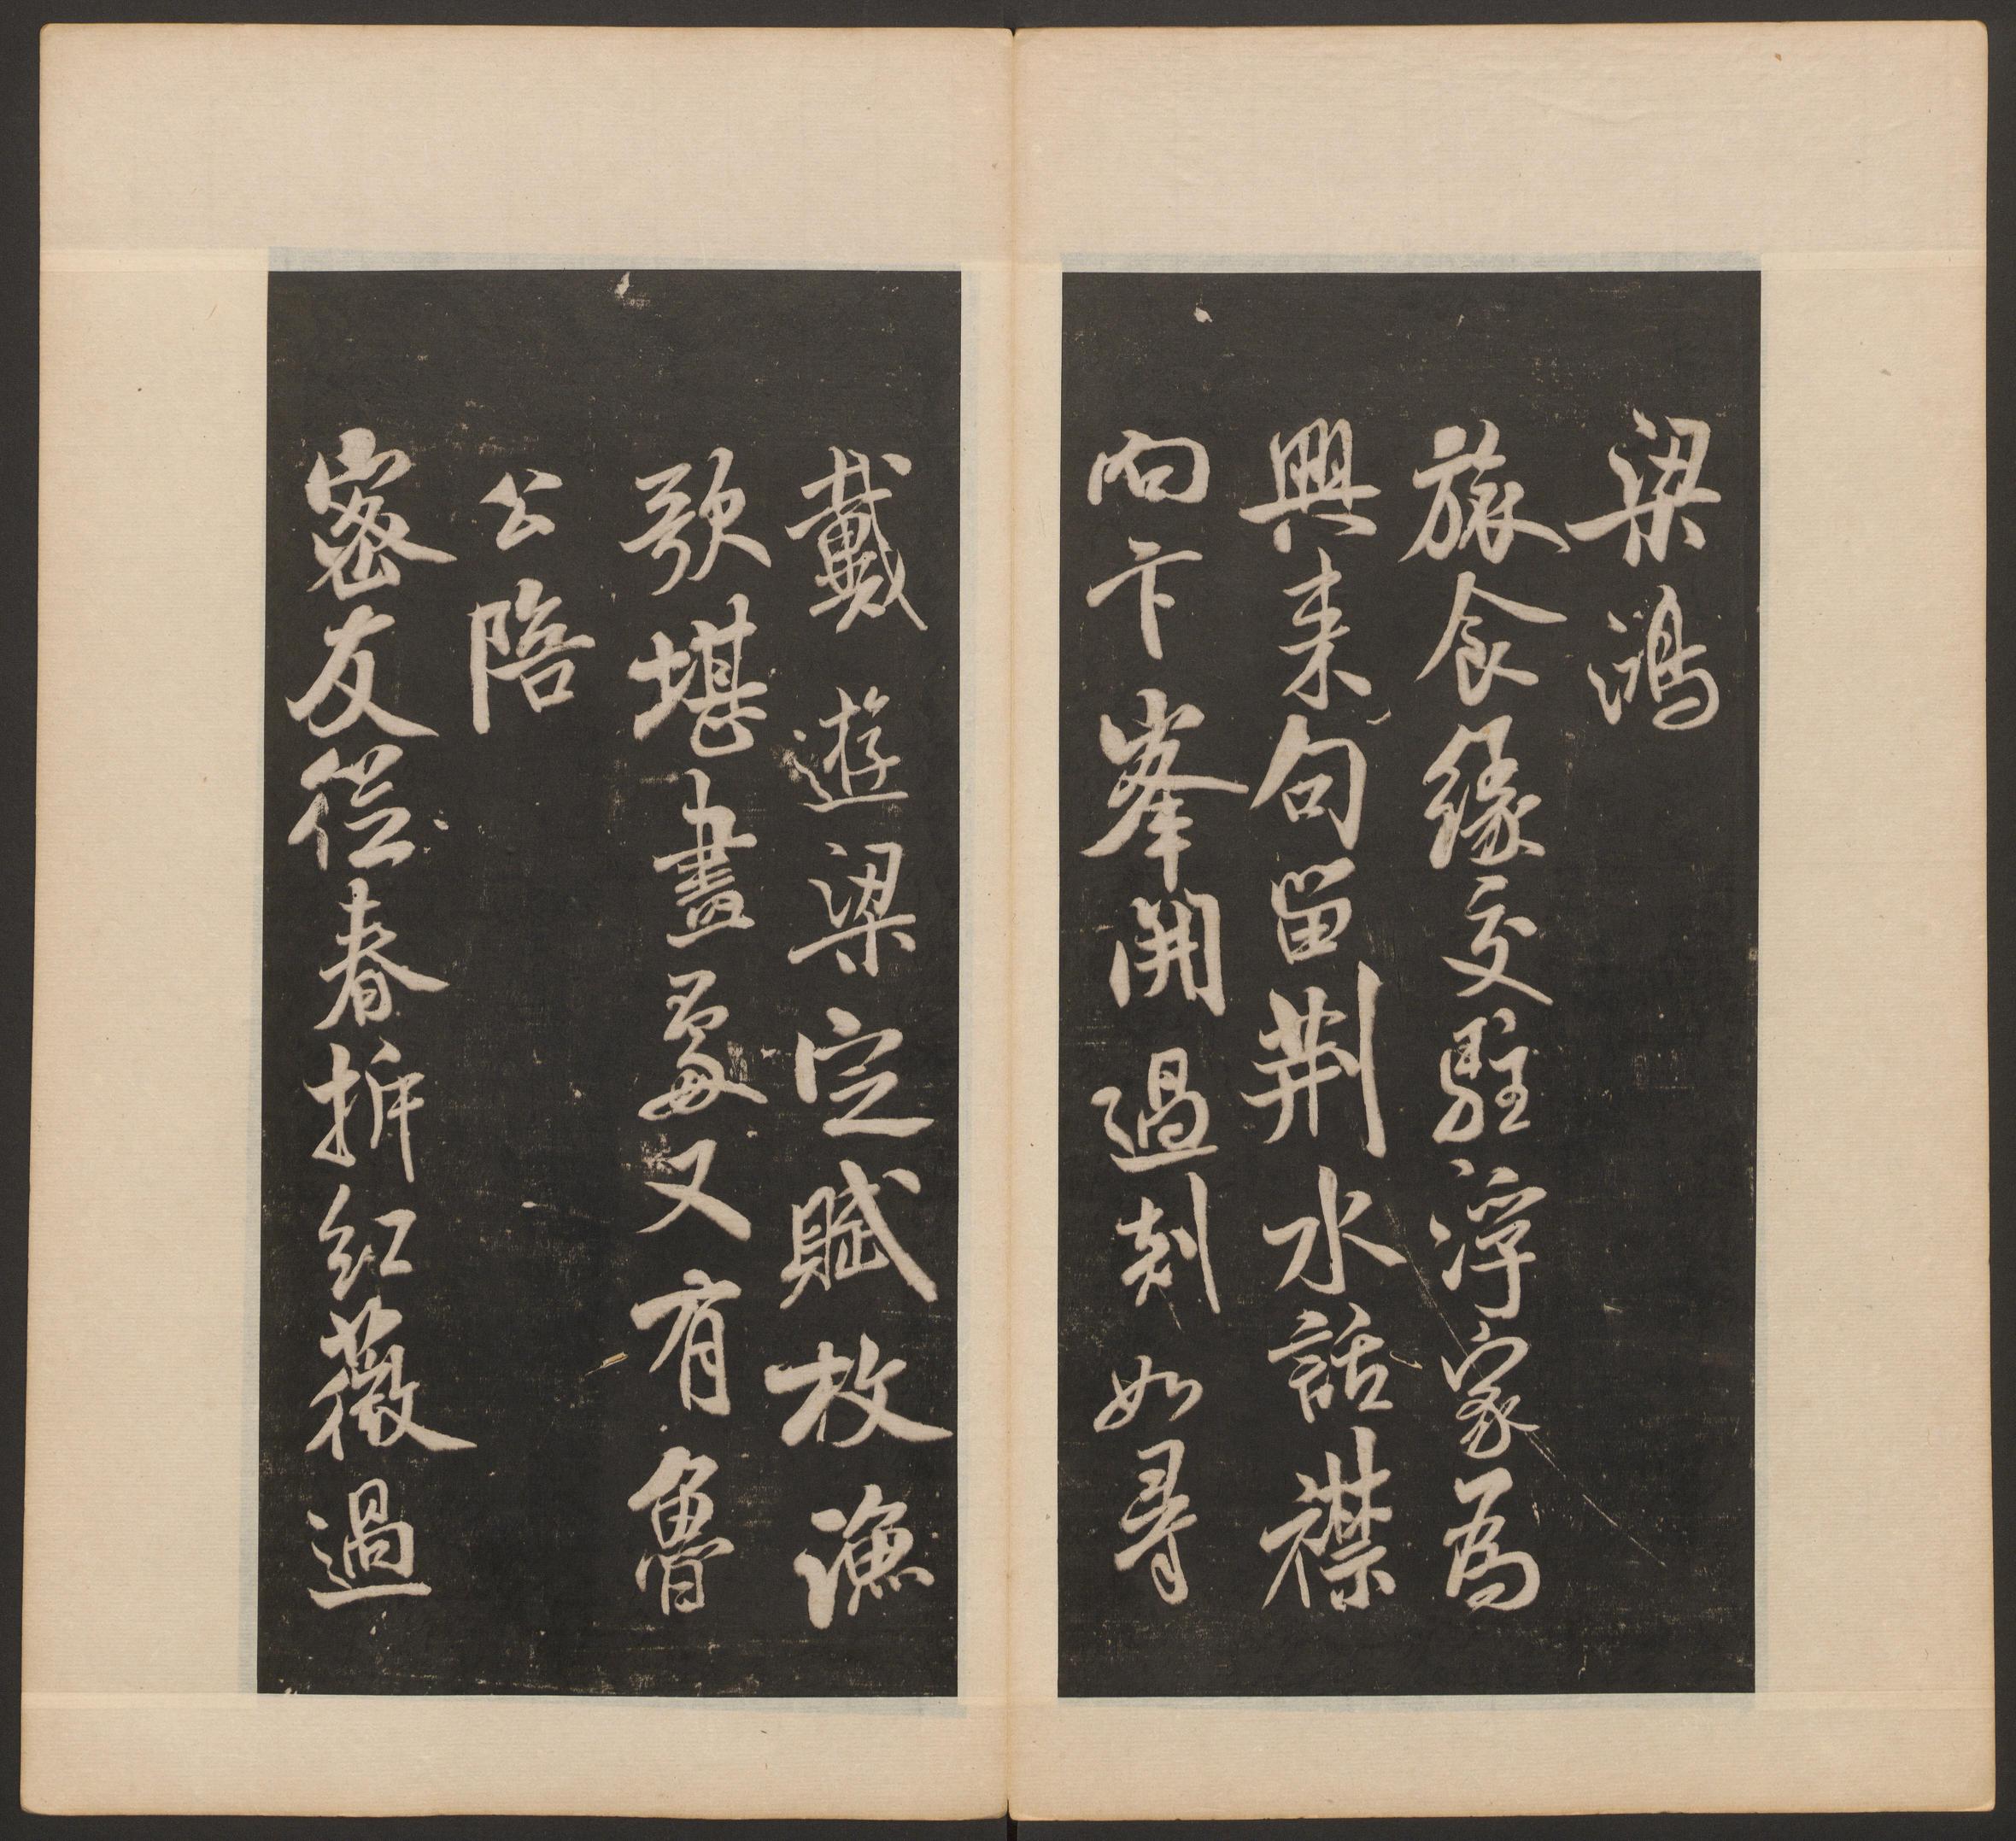 梁鴻
旅食緣交駐浮家為
興来句留荆水話襟
向卞峯開過剡如尋
戴遊梁定賦枚漁
歌堪畫處又有魯
公陪
密友從春拆紅薇過